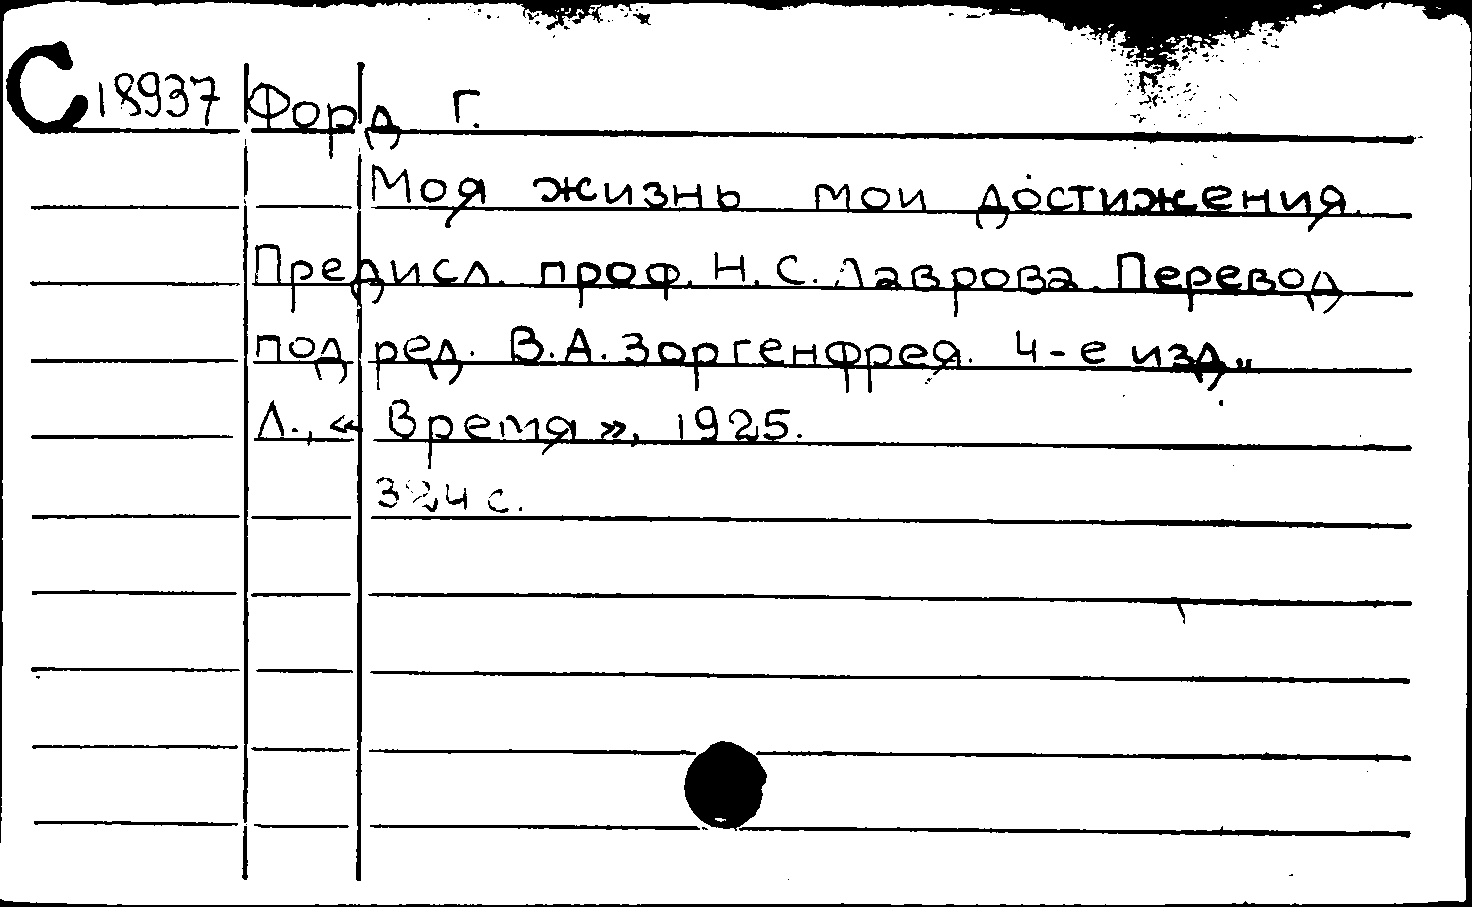 С 18937 Форд Г.
Моя жизнь мои достижения.
Предисл. проф. Н. С. Лаврова. Перевод
под ред. В.А. Зоргенфрея. 4-е изд.,,
Л., « Время », 1925.
324 с.